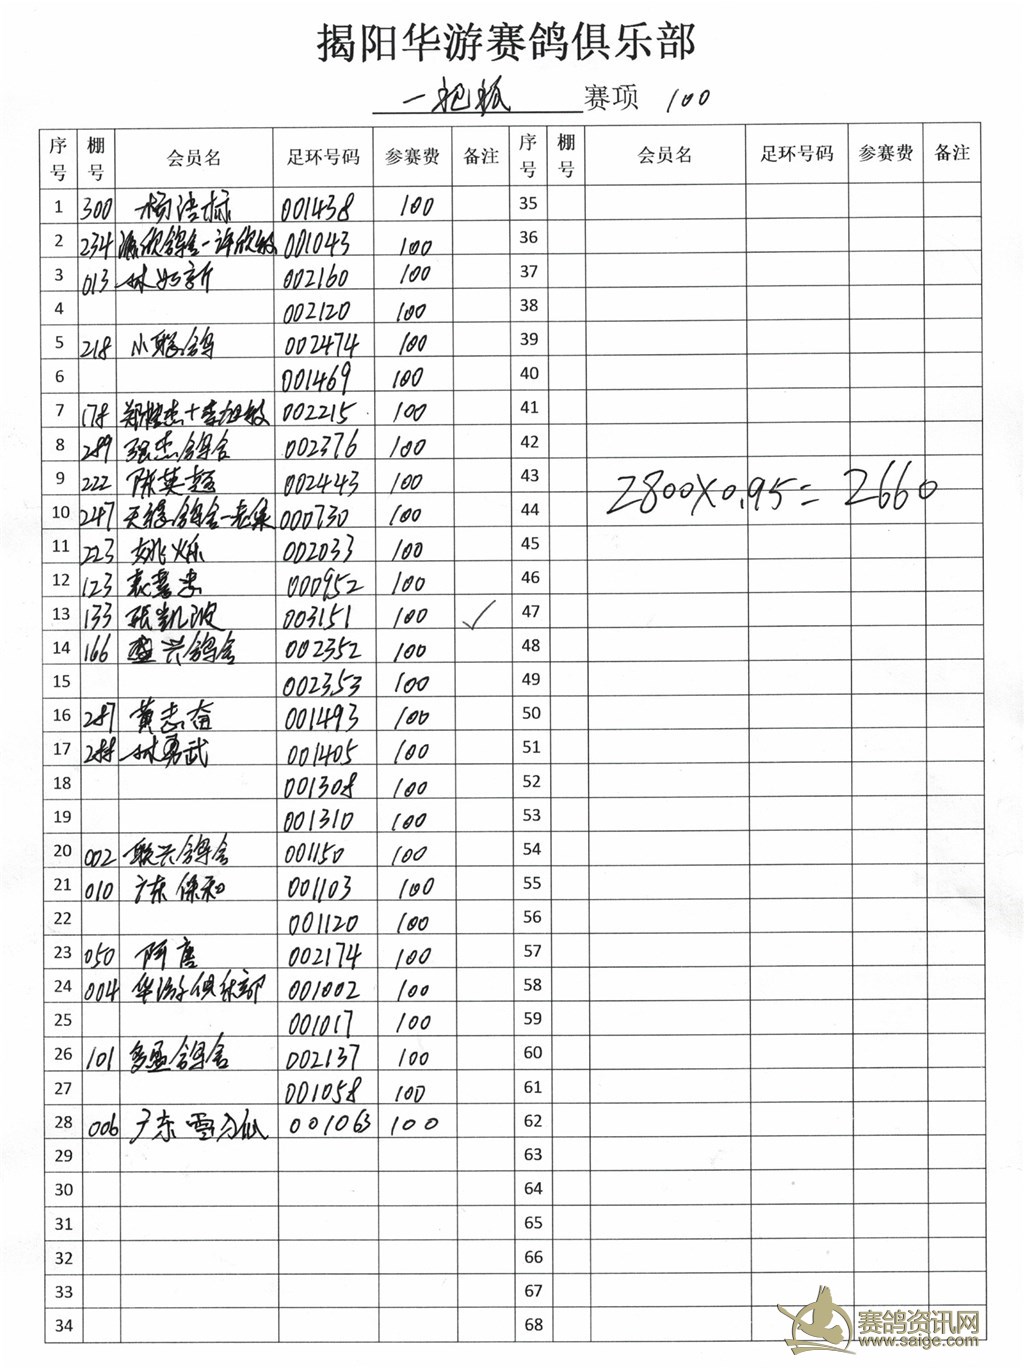 揭阳华游赛鸽俱乐部
赛项 100
序号 棚号 会员名 足环号码 参赛费 备注 序号 棚号 会员名 足环号码 参赛费 备注
1 300 杨洁标 001438 100 35
2 234 001043 100 36
3 013 002160 100 37
4 002120 100 38
5 218 小聪鸽 002474 100 39
6 001469 100 40
7 178 002215 100 41
8 289 强杰鸽舍 002376 100 42
9 222 陈英超 002443 100 43
2800×0.95=2660
10 247 000730 100 44
11 223 姚火乐 002033 100 45
12 123 000952 100 46
13 133 張凱波 003151 100 ✓ 47
14 166 盛兴鸽舍 002352 100 48
15 002353 100 49
16 287 黄志奋 001493 100 50
17 288 林勇武 001405 100 51
18 001308 100 52
19 001310 100 53
20 002 联兴鸽舍 001150 100 54
21 010 广东保和 001103 100 55
22 001120 100 56
23 050 阿喜 002174 100 57
24 004 华游俱乐部 001002 100 58
25 001017 100 59
26 101 多盈鸽舍 002137 100 60
27 001058 100 61
28 006 广东雪 001063 100 62
29 63
30 64
31 65
32 66
33 67
34 68
赛鸽资讯网
www.saige.com